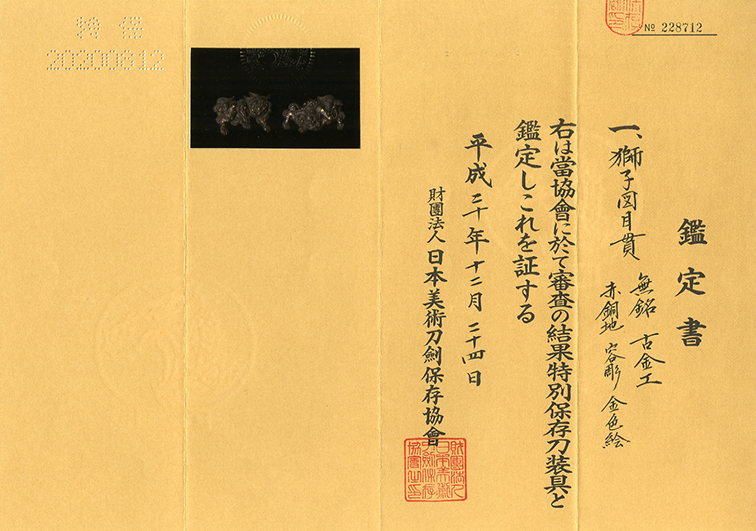 鑑定書
№ 228712
一、獅子図目貫
無銘 古金工
赤銅地 容彫 金色絵
右は當協會に於て審査の結果特別保存刀装具と
鑑定しこれを証する
平成二十年十二月二十四日
財團法人日本美術刀劍保存協會
20200812